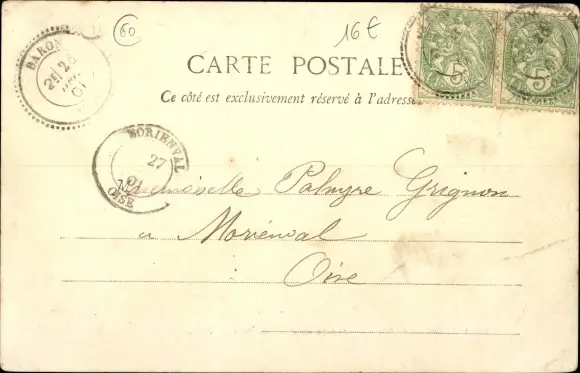 60
16€
BARON
2E 26
01
CARTE POSTALE
Ce côté est exclusivement réservé à l'adresse
5
5
MORIENVAL
27
OISE
Mademoiselle Palmyre Grignon
a Moriénval
Oise